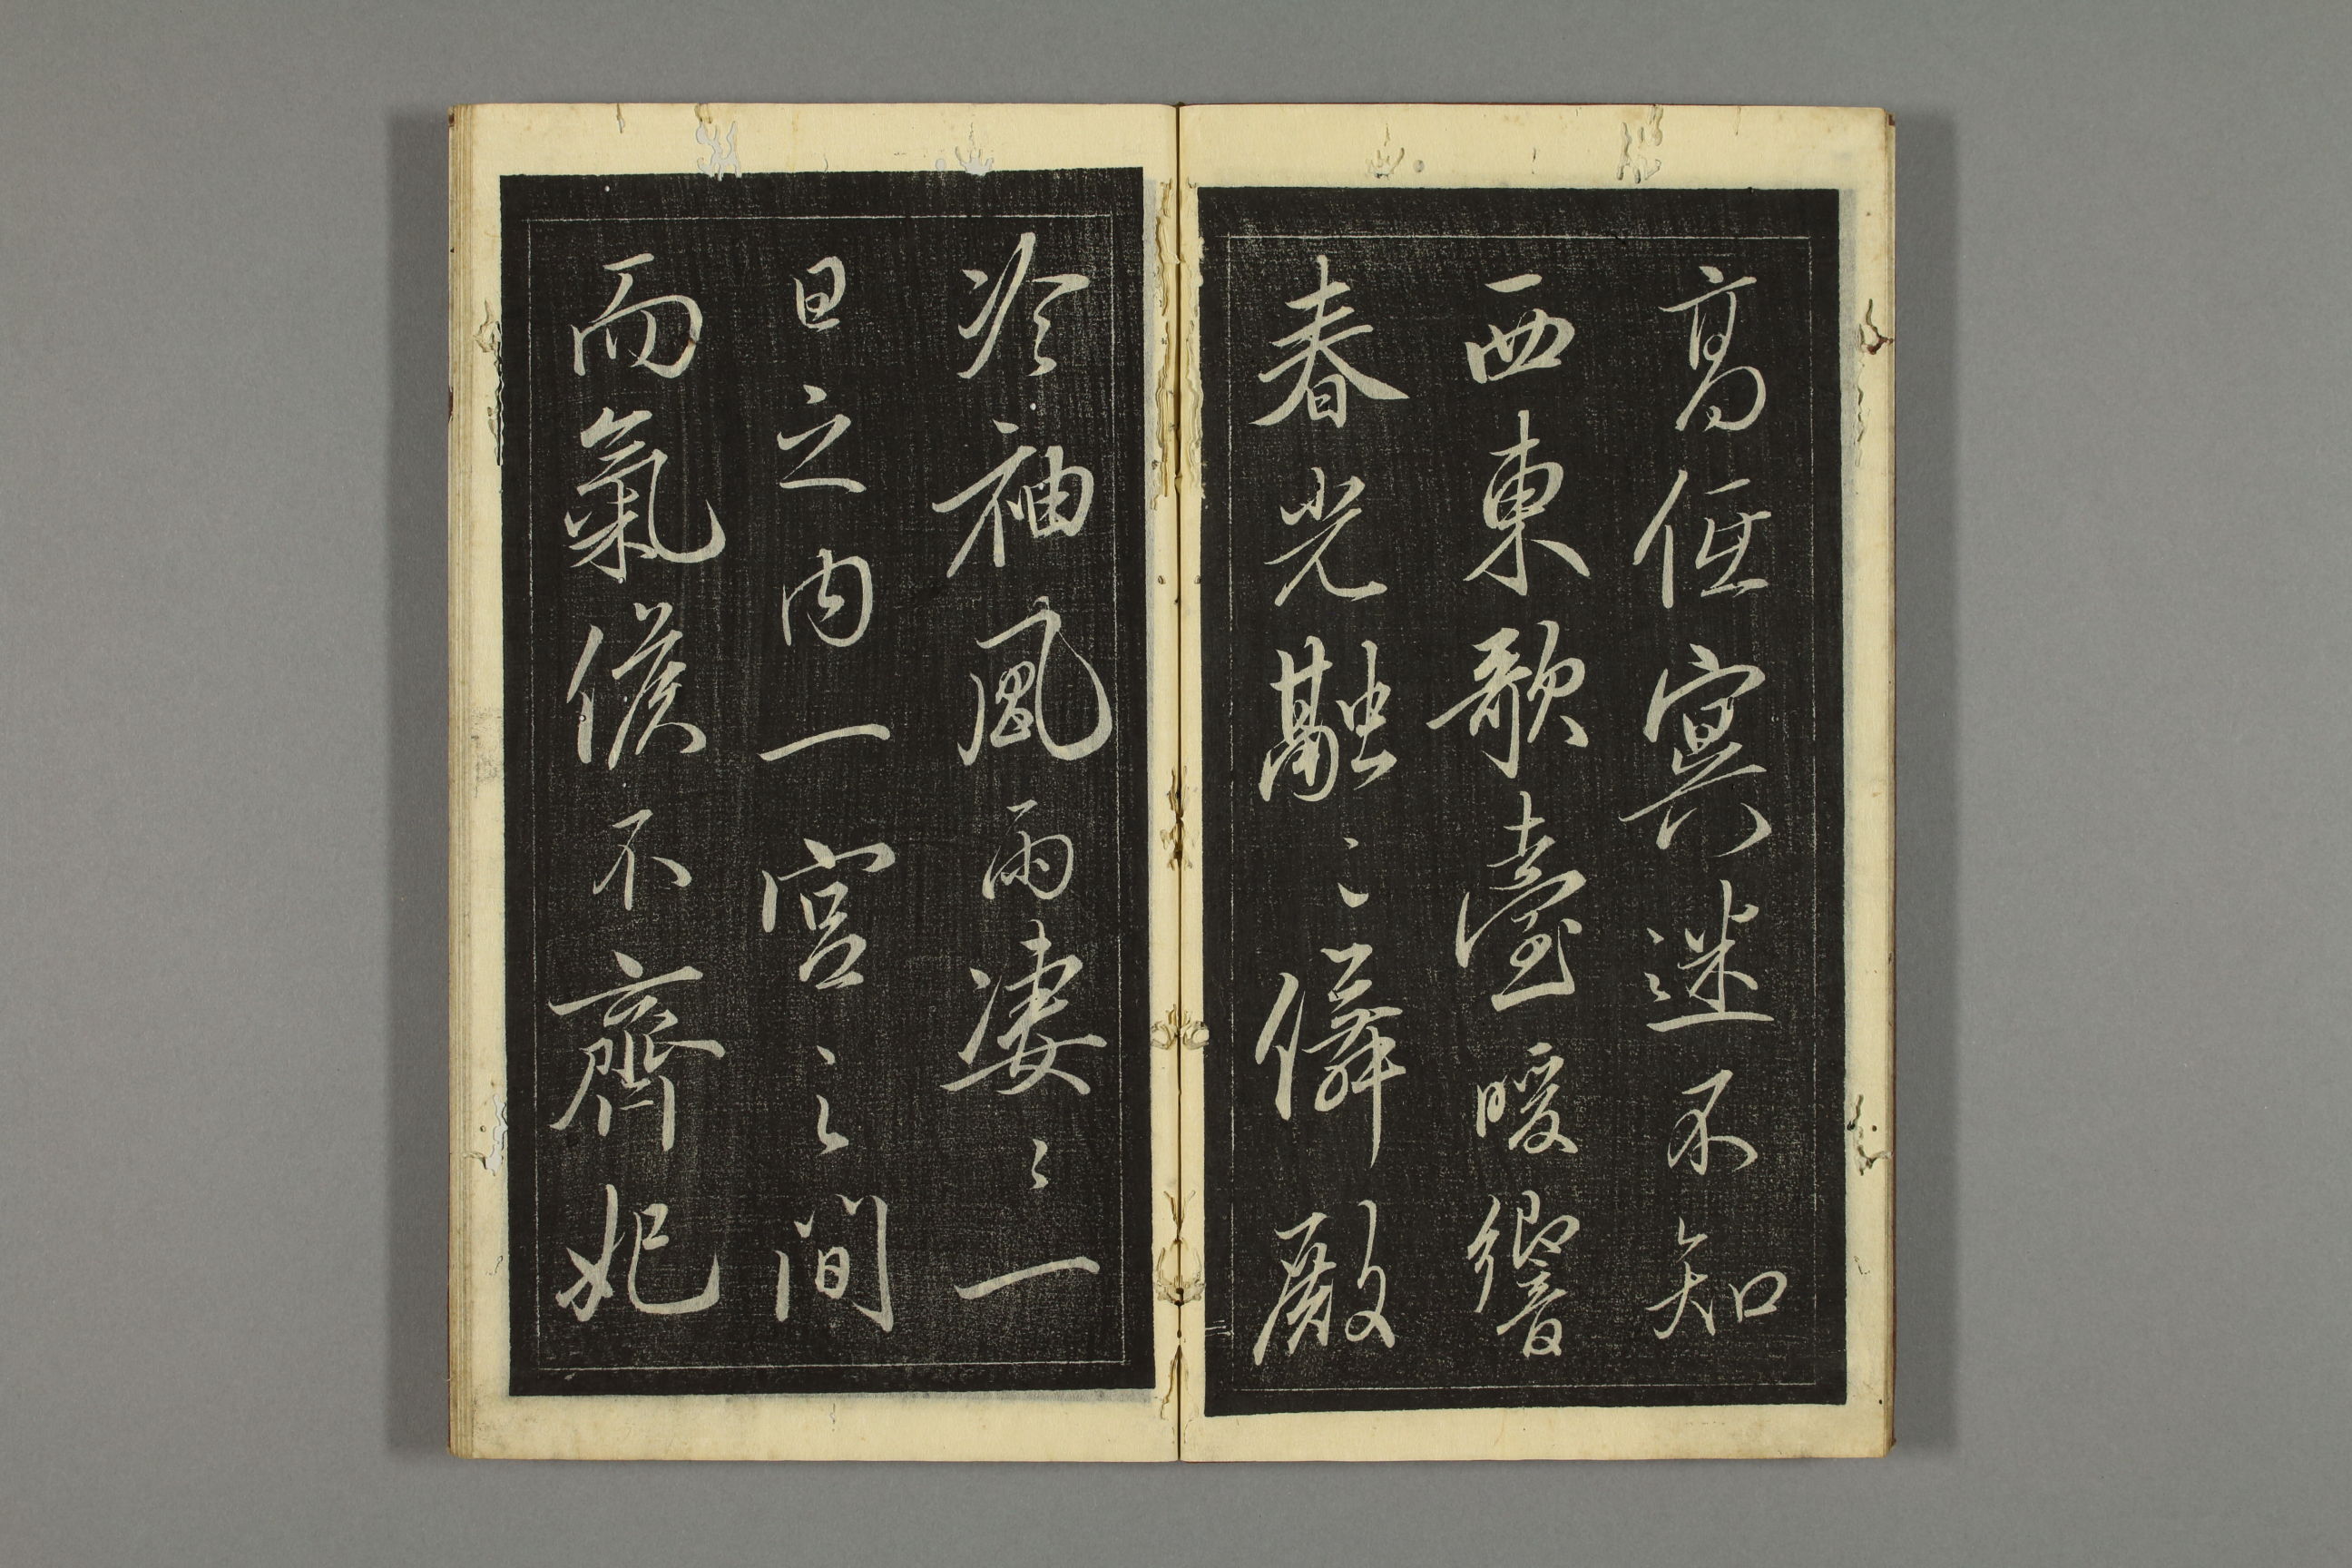 高低冥迷不知
西東歌臺暖響
春光融〻儛殿
冷袖風雨凄〻一
日之内一宮之間
而氣候不齊妃